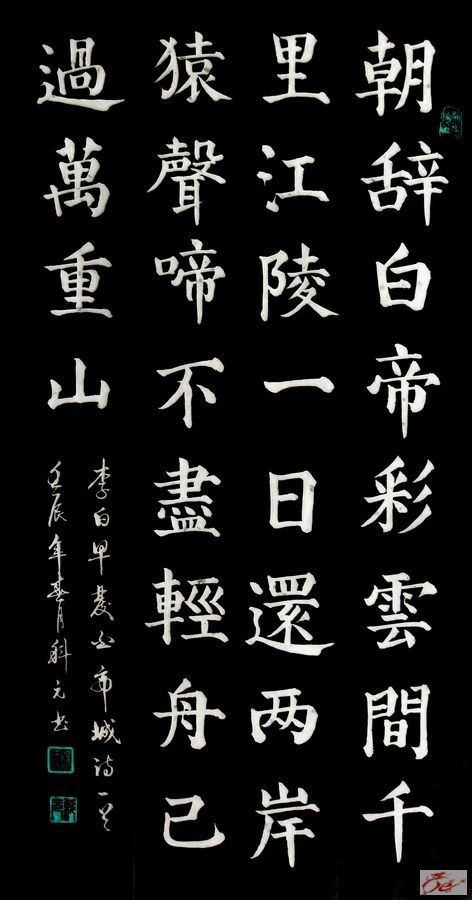 朝辞白帝彩雲間千
里江陵一日還两岸
猿聲啼不盡輕舟已
過萬重山
李白早發白帝城诗一首
壬辰年春月科元书